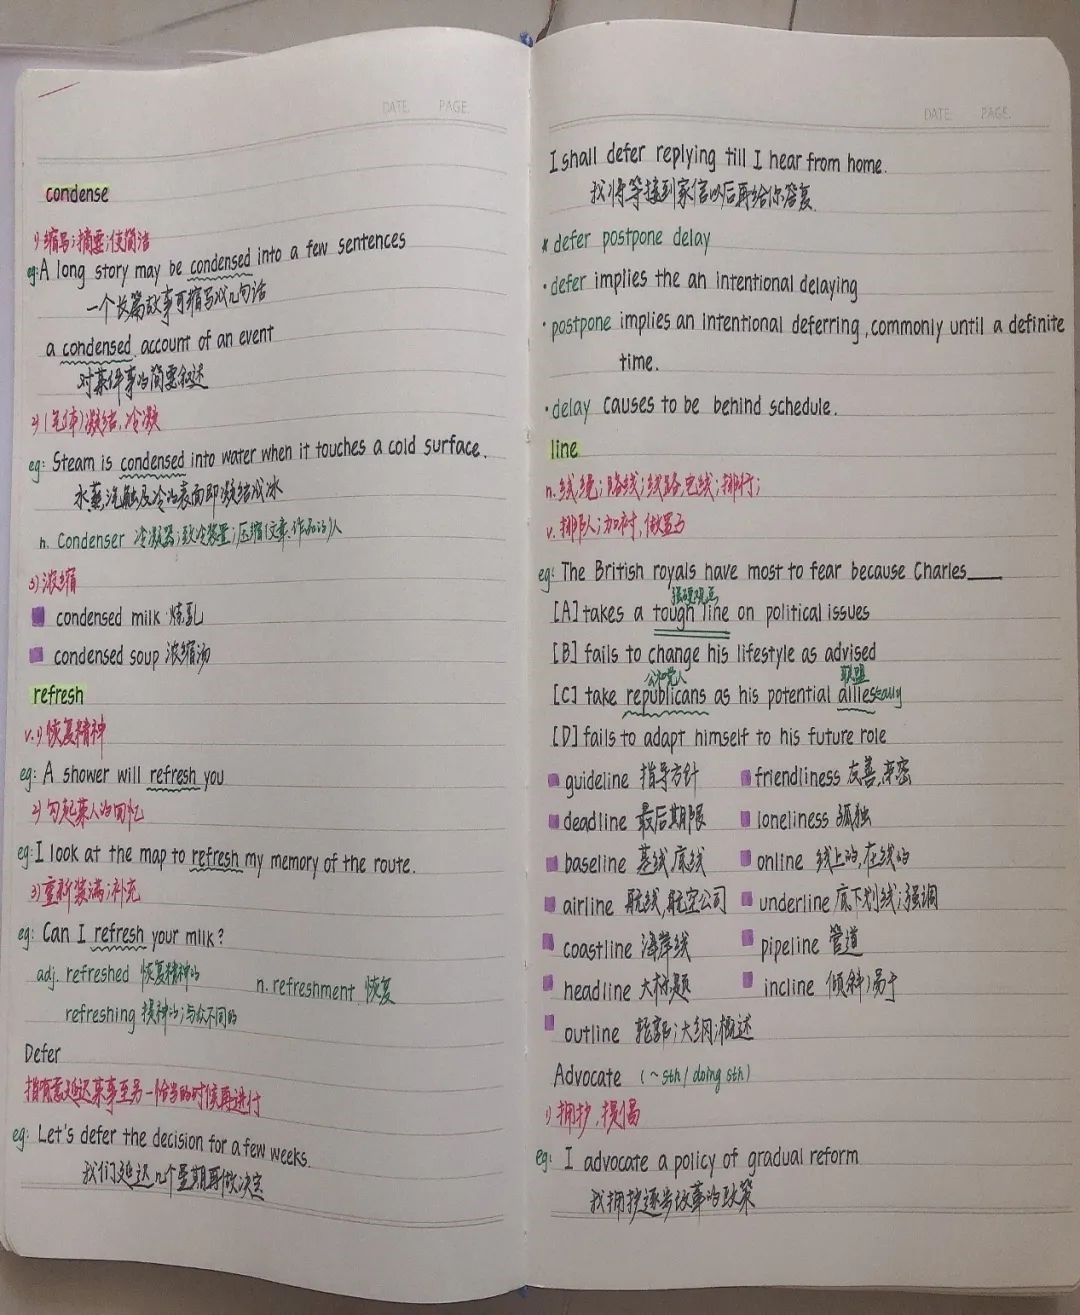 DATE. PAGE.
condense
1) 缩写;摘要;使简洁
eg: A long story may be condensed into a few sentences
一个长篇故事可缩写成几句话
a condensed account of an event
对某件事的简要叙述
2) (气体)凝结,冷凝
eg: Steam is condensed into water when it touches a cold surface.
水蒸汽触及冷的表面即凝结成冰
n. Condenser 冷凝器;致冷装置;压缩(文章、作品的)人
3) 浓缩
condensed milk 炼乳
condensed soup 浓缩汤
refresh
v. 1) 恢复精神
eg: A shower will refresh you
2) 勾起某人的回忆
eg: I look at the map to refresh my memory of the route.
3) 重新装满;补充
eg: Can I refresh your milk?
adj. refreshed 恢复精神的 n. refreshment 恢复
refreshing 提神的;与众不同的
Defer
指有意延迟某事至另一恰当的时候再进行
eg: Let's defer the decision for a few weeks.
我们延迟几个星期再做决定
DATE. PAGE.
I shall defer replying till I hear from home.
我将等接到家信以后再给你答复
* defer postpone delay
· defer implies the an intentional delaying
· postpone implies an intentional deferring, commonly until a definite
time.
· delay causes to be behind schedule.
line
n. 线,绳;路线;线路,电线;排,行;
v. 排队;加衬,做里子
eg: The British royals have most to fear because Charles___
强硬观点
[A] takes a tough line on political issues
[B] fails to change his lifestyle as advised
公和党人 联盟
[C] take republicans as his potential allies
[D] fails to adapt himself to his future role
guideline 指导方针 friendliness 友善,亲密
deadline 最后期限 loneliness 孤独
baseline 基线,底线 online 线上的,在线的
airline 航线,航空公司 underline 底下划线;强调
coastline 海岸线 pipeline 管道
headline 大标题 incline 倾斜;易于
outline 轮廓;大纲;概述
Advocate (~sth/doing sth)
1) 拥护,提倡
eg: I advocate a policy of gradual reform
我拥护逐步改革的政策